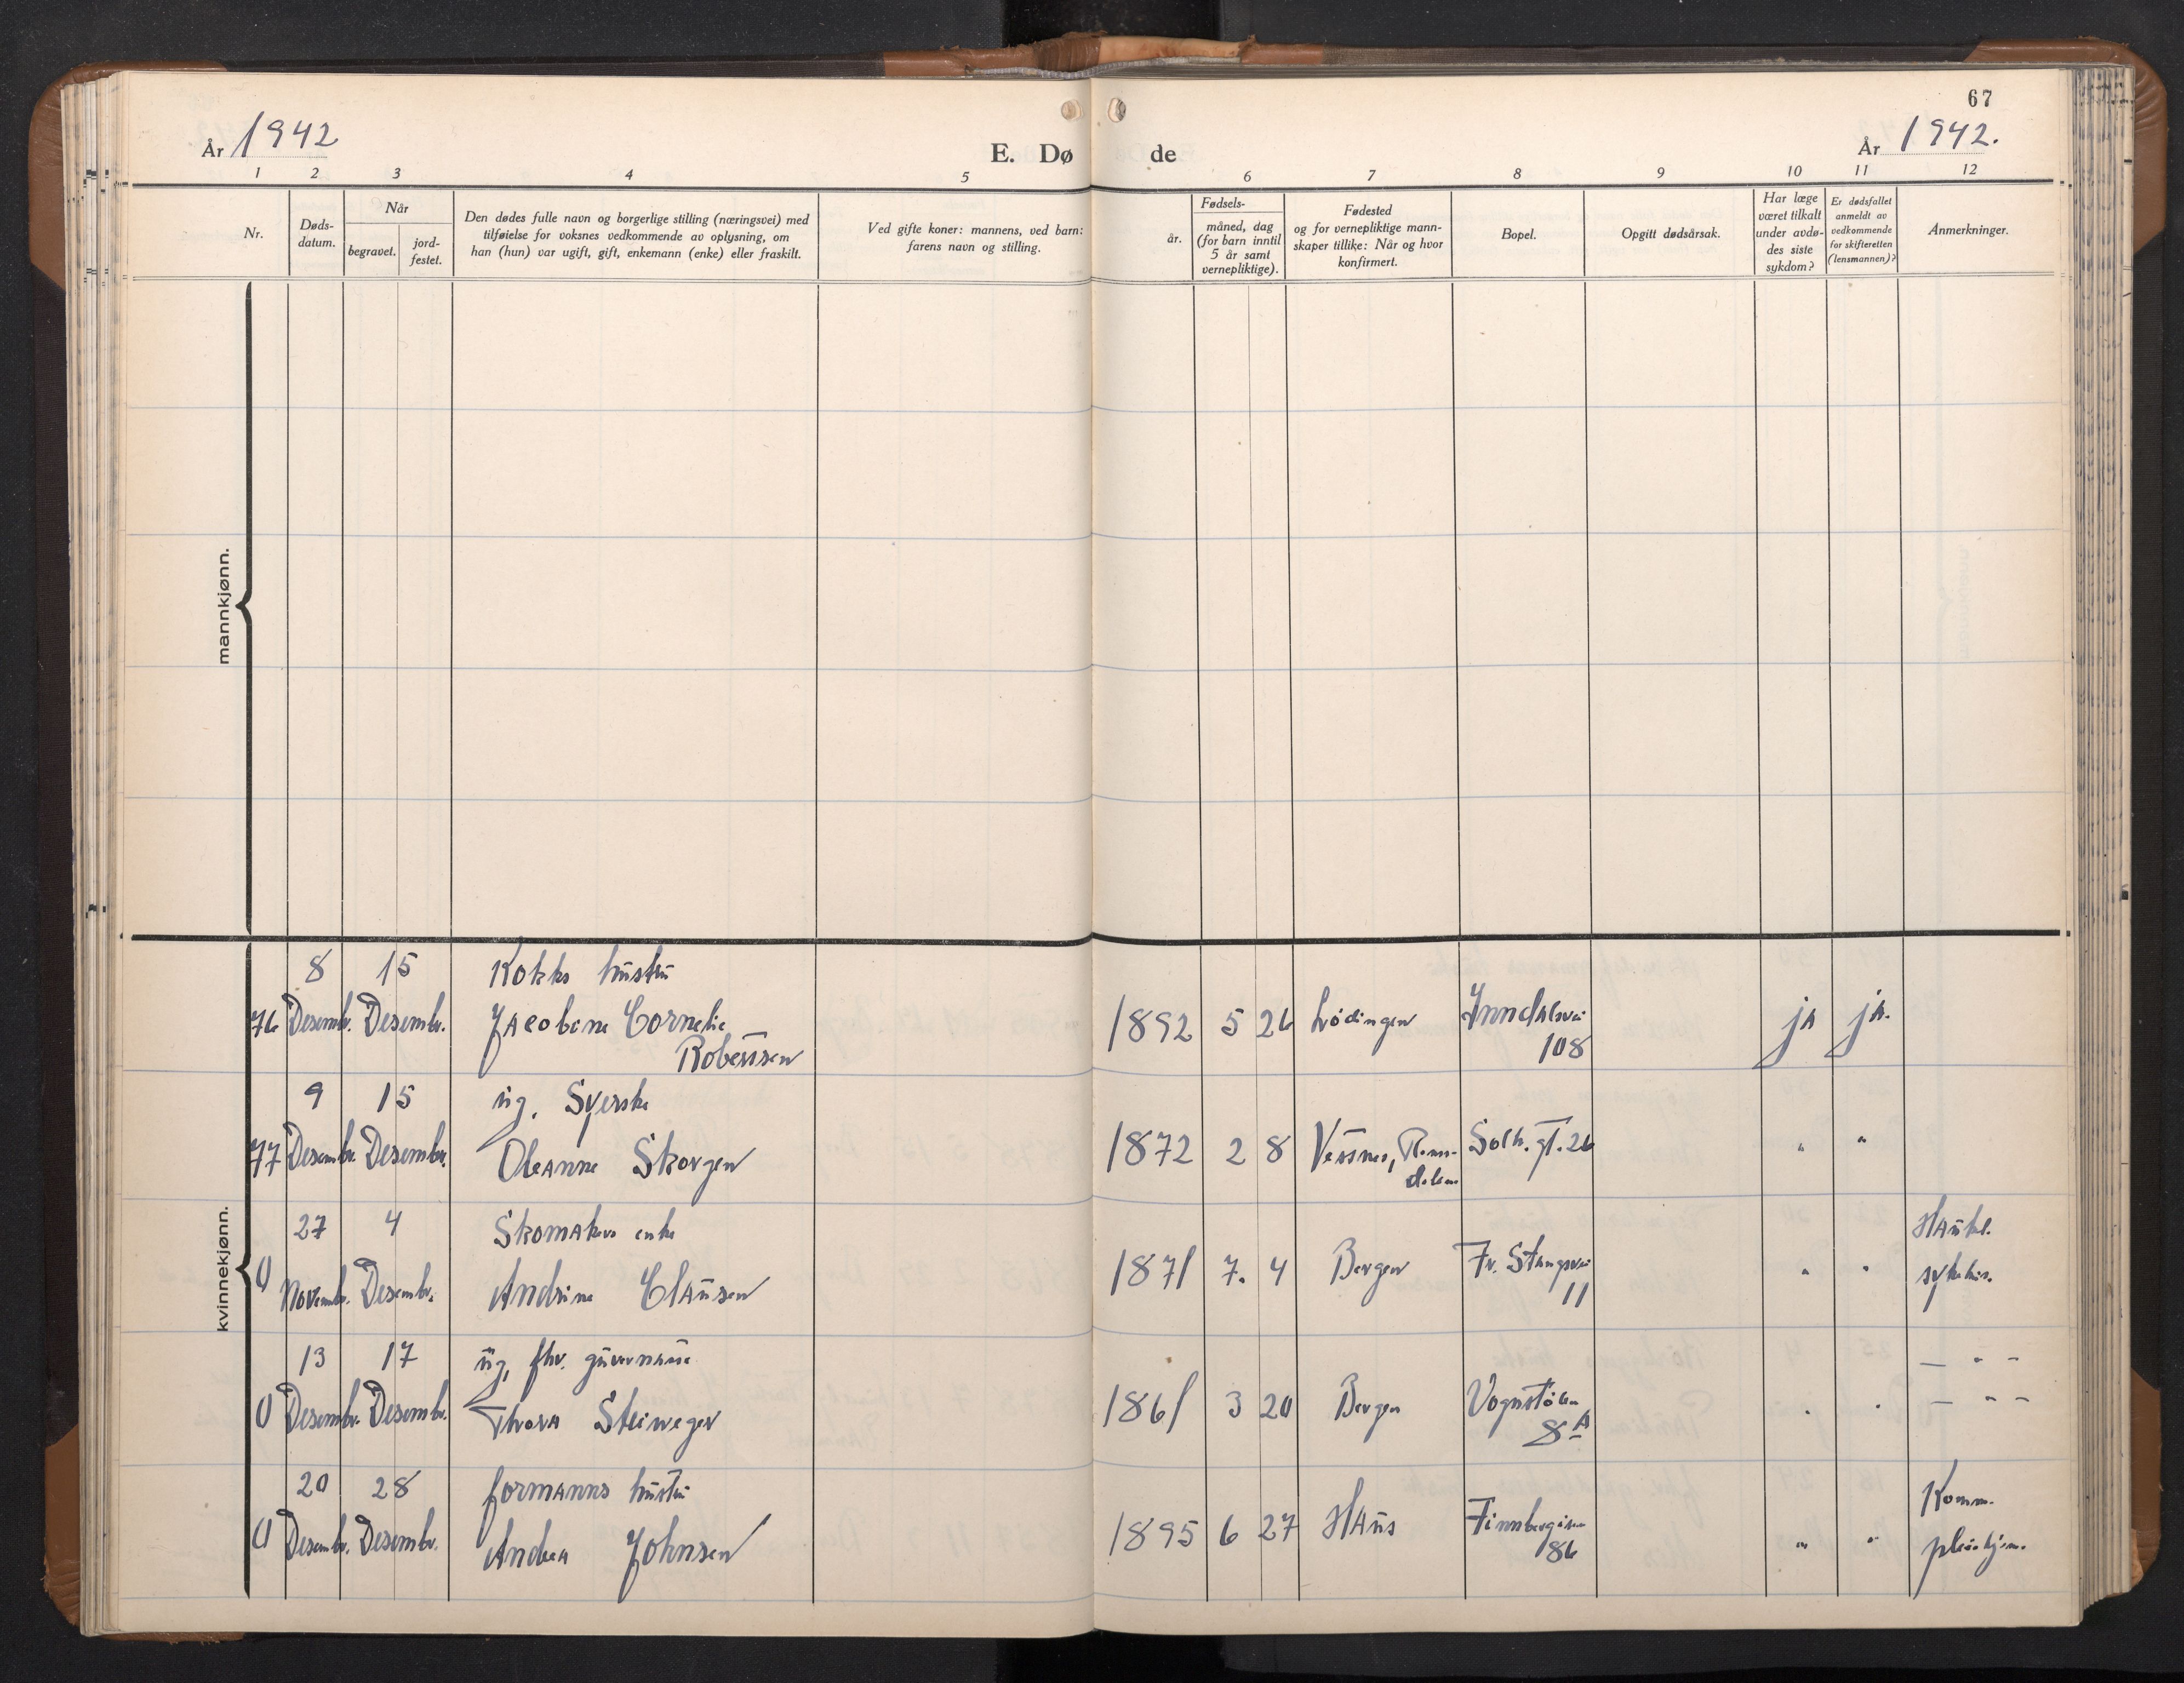 67
År 1942
E. Dø de
År 1942.
1 2 3 4 5 6 7 8 9 10 11 12
Nr.
Døds-
datum.
Når
begravet.
jord-
festet.
Den dødes fulle navn og borgerlige stilling (næringsvei) med
tilføielse for voksnes vedkommende av oplysning, om
han (hun) var ugift, gift, enkemann (enke) eller fraskilt.
Ved gifte koner: mannens, ved barn:
farens navn og stilling.
Fødsels-
år.
måned, dag
(for barn inntil
5 år samt
vernepliktige).
Fødested
og for vernepliktige mann-
skaper tillike: Når og hvor
konfirmert.
Bopel.
Opgitt dødsårsak.
Har læge
været tilkalt
under avdø-
des siste
sykdom?
Er dødsfallet
anmeldt av
vedkommende
for skifteretten
(lensmannen)?
Anmerkninger.
mannkjønn.
kvinnekjønn.
8 15 Kokks hustru
76 Desembr. Desembr. Jacobine Cornelie 1892 5 26 Lødingen Inndalsvei ja ja.
Robertsen 108
9 15 ug. Syerske
77 Desembr. Desembr. Oleanne Skorgen 1872 2 8 Vestnes, Roms- Solh. gt. 26 " "
dalen
27 4 Skomakers enke Haukel.
0 Novembr. Desembr. Andrine Clausen 1871 7. 4 Bergen Fr. Stangsvei " " sykehus.
11
13 17 ug, fhv. guvernante — " –
0 Desembr. Desembr. Thora Steinweger 1861 3 20 Bergen Vognstølen " " — " –
8 A
20 28 formanns hustru Komm.
0 Desembr. Desembr. Andrea Johnsen 1895 6 27 Haus Finnbergåsen " " pleiehjem.
86